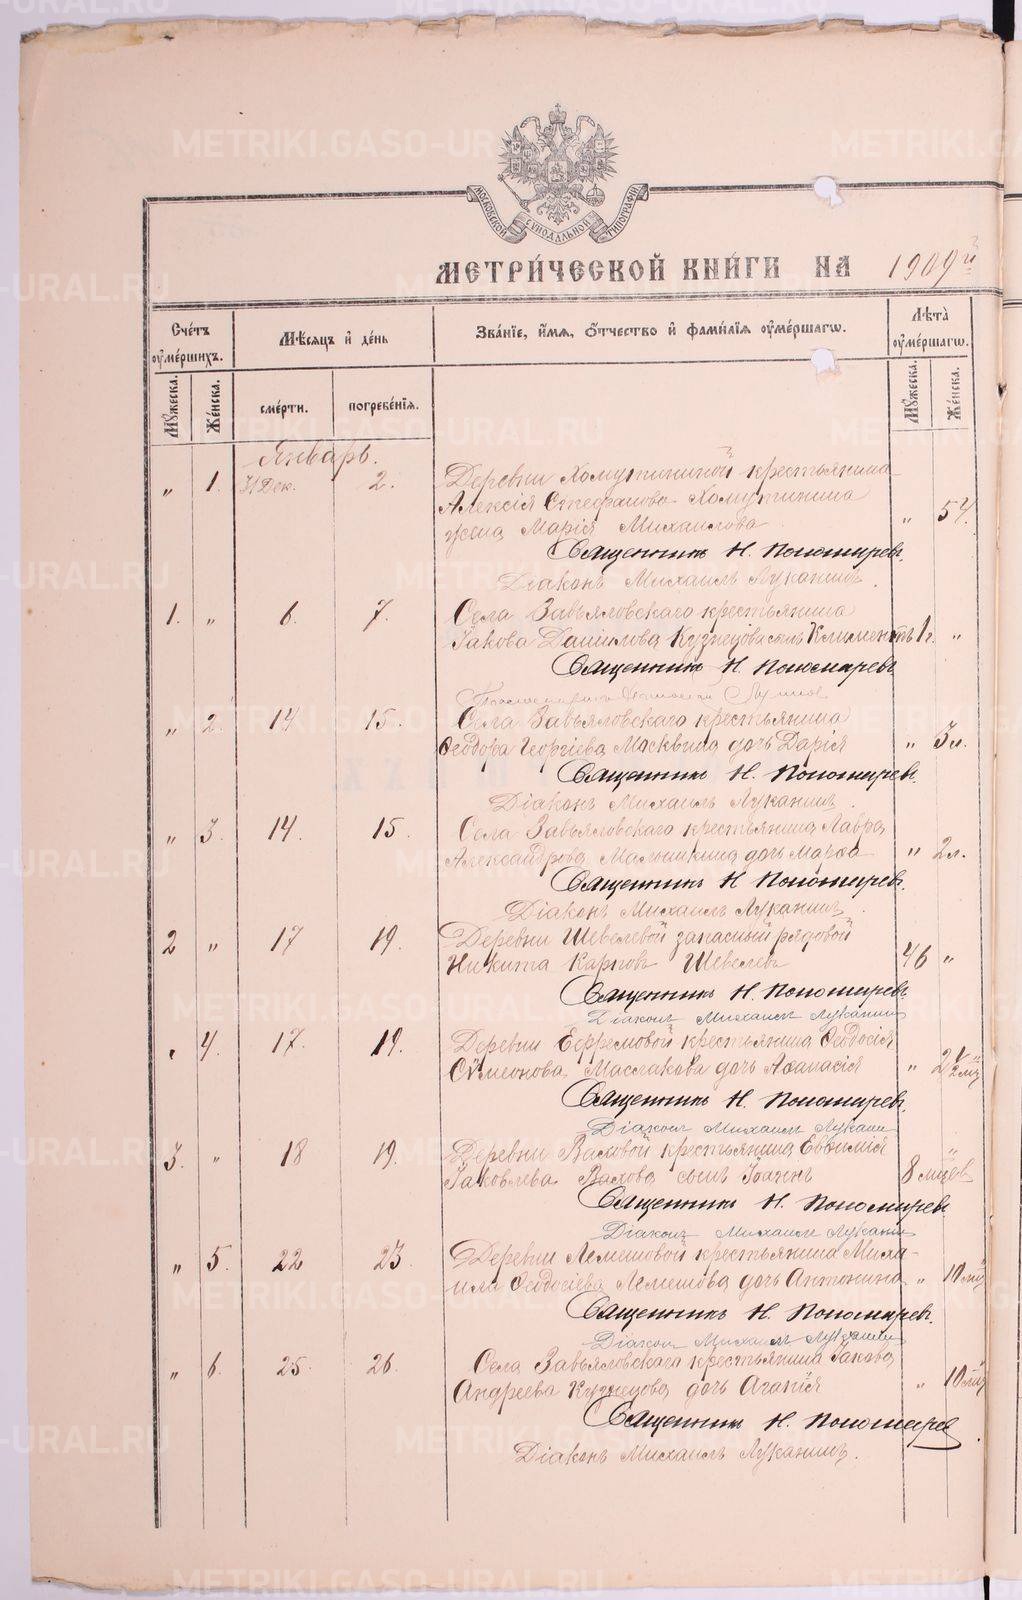 МОСКОВСКОЙ СѴНОДАЛЬНОЙ ТИПОГРАФІИ
МЕТРИ́ЧЕСКОЙ КНИ́ГИ НА 1909 й
Сче́тъ оу҆ме́ршихъ.
Мѣ́сѧцъ и҆ де́нь
Зва́нїе, и҆́мѧ, ѻ҆́тчество и҆ фами́лїѧ оу҆ме́ршагѡ.
Лѣта̀ оу҆ме́ршагѡ.
Мꙋ́жеска.
Же́нска.
сме́рти.
погребе́нїѧ.
Мꙋ́жеска.
Же́нска.
Январь.
„ 1. 31 Дек. 2. Деревни Хомутининой крестьянина
Алексія Стефанова Хомутинина
жена Марія Михаилова „ 54.
Священникъ Н. Пономаревъ.
Діаконъ Михаилъ Луканинъ.
1. „ 6. 7. Села Завьяловскаго крестьянина
Іакова Даниілова Кузнецова сынъ Климентъ 1 г. „
Священникъ Н. Пономаревъ
„ 2. 14 15. Села Завьяловскаго крестьянина
Ѳеодора Георгіева Москвина дочь Дарія „ 3 л.
Священникъ Н. Пономаревъ.
Діаконъ Михаилъ Луканинъ.
„ 3. 14. 15. Села Завьяловскаго крестьянина Лавра
Александрова Мальчикина дочь Марѳа „ 2 л.
Священникъ Н Пономаревъ.
Діаконъ Михаилъ Луканинъ.
2 „ 17 19. Деревни Шевелевой запасный рядовой
Никита Карповъ Шевелевъ 46 „
Священникъ Н. Пономаревъ
Діаконъ Михаилъ Луканинъ
„ 4. 17. 19. Деревни Ефремовой крестьянина Ѳеодосія
Сѵмеонова Маслакова дочь Аѳанасія „
Священникъ Н. Пономаревъ.
Діаконъ Михаилъ Луканин
3. „ 18 19. Деревни Валовой крестьянина Евѳимія
Іаковлева Валова сынъ Іоаннъ 8 мцев „
Священникъ Н. Пономаревъ.
Діаконъ Михаилъ Луканин
„ 5. 22 23. Деревни Лемешовой крестьянина Миха-
ила Ѳеодосіева Лемешова дочь Антонина „ 10 мц
Священникъ Н. Пономаревъ.
Діаконъ Михаилъ Луканинъ
„ 6. 25. 26. Села Завьяловскаго крестьянина Іакова
Андреева Кузнецова дочь Агапія „ 10 мц
Священникъ Н. Пономарев
Діаконъ Михаилъ Луканинъ.
METRIKI.GASO-URAL.RU